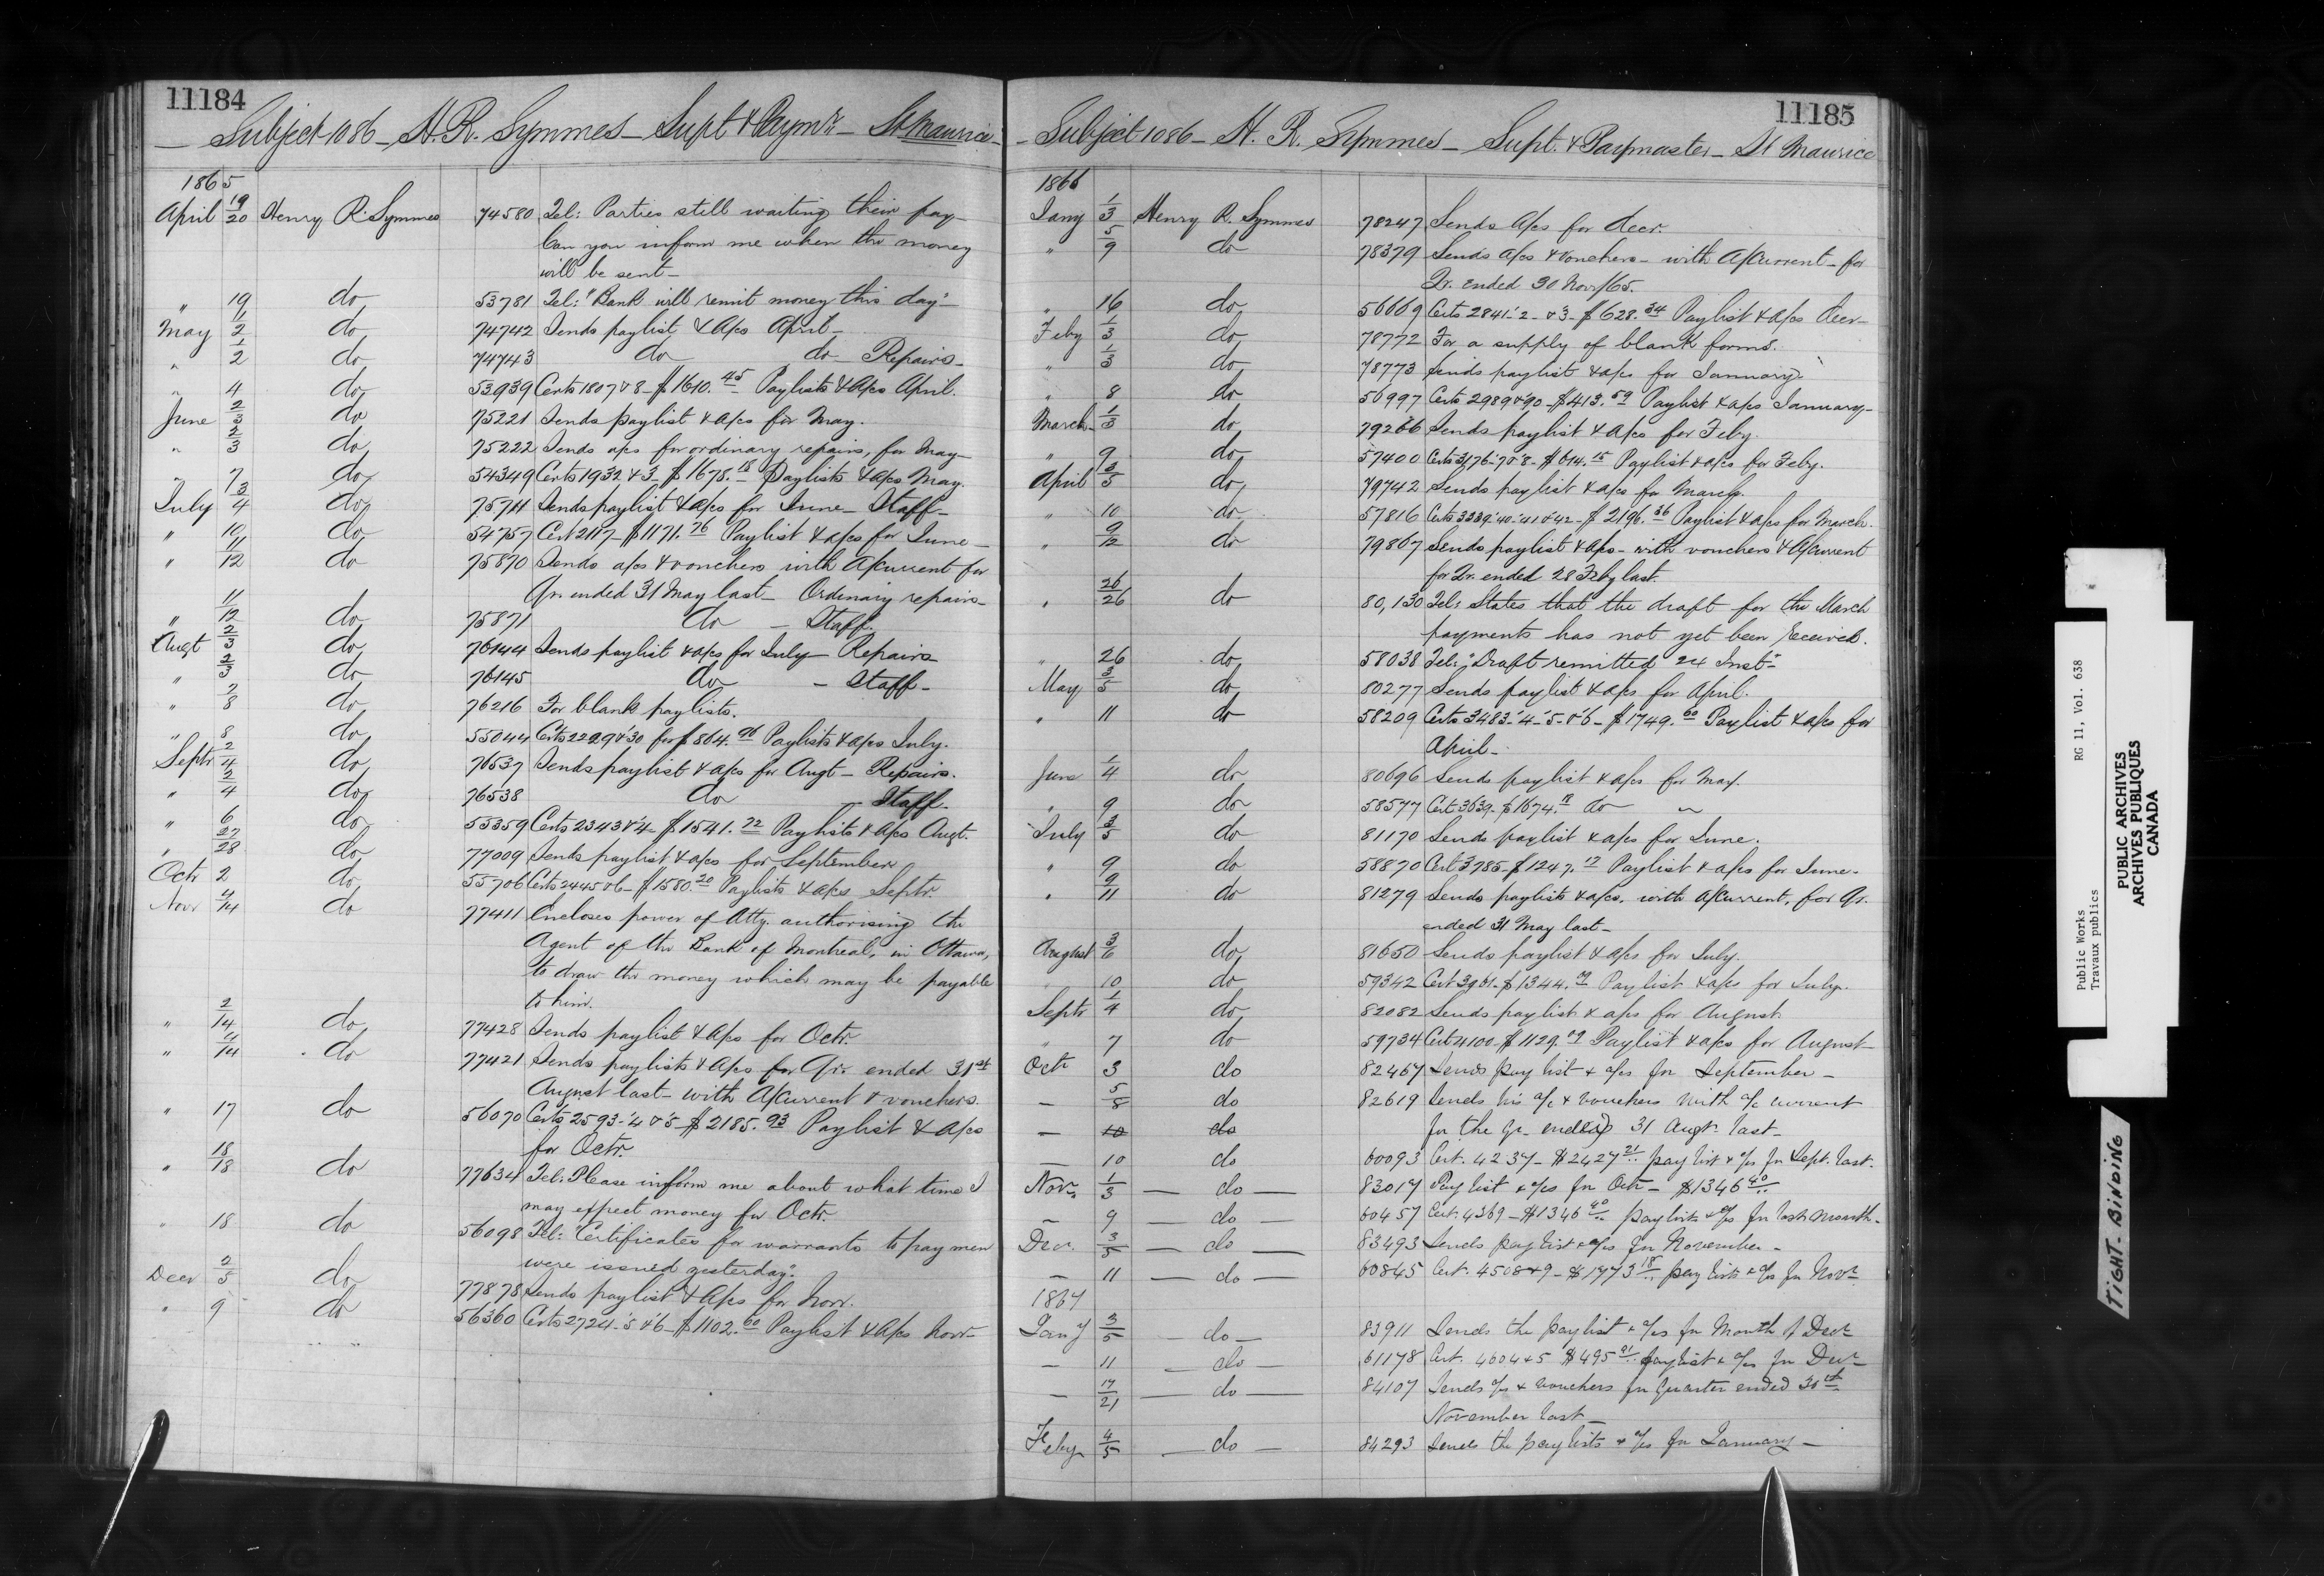 11184
Subject 1086 - H. R. Symmes - Supt & Paymr - St Maurice -
1865
April 19/20 Henry R. Symmes 74580 Tel: Parties still waiting their pay -
Can you inform me when the money
will be sent -
" 19 do 53781 Tel: "Bank will remit money this day" -
May 1/2 do 74742 Sends paylist & a/cs April -
" 1/2 do 74743 do do - Repairs -
" 4 do 53939 Certs 1807 & 8 - $1610.45 Paylists & a/cs April.
June 2/3 do 75221 Sends paylist & a/cs for May.
" 2/3 do 75222 Sends a/cs for ordinary repairs, for May -
" 7 do 54349 Certs 1932 & 3 - $1678.18 Paylists & a/cs May.
July 3/4 do 75711 Sends paylist & a/cs for June - Staff -
" 10 do 54757 Cert 2117 - $1171.76 Paylist & a/cs for June -
" 11/12 do 75870 Sends a/cs & vouchers with A/Current for
Qr. ended 31 May last - Ordinary repairs -
" 11/12 do 75871 do - Staff.
Augt 2/3 do 76144 Sends paylist & a/cs for July - Repairs
" 2/3 do 76145 do - Staff -
" 7/8 do 76216 For blank paylists.
" 8 do 55044 Certs 2229 & 30 for $864.96 Paylists & a/cs July.
Septr 2/4 do 76537 Sends paylist & a/cs for Augt - Repairs.
" 2/4 do 76538 do - Staff -
" 6 do 55359 Certs 2343 & 4 - $1541.72 Paylists & a/cs Augt.
" 27/28 do 77009 Sends paylist & a/cs for September
Octr 2 do 55706 Certs 2445 & 6 - $1580.20 Paylists & a/cs Septr.
Novr 4/14 do 77411 Encloses power of Atty. authorising the
Agent of the Bank of Montreal, in Ottawa,
to draw the money which may be payable
to him.
" 2/14 do 77428 Sends paylist & a/cs for Octr.
" 4/14 do 77421 Sends paylists & a/cs for Qr. ended 31st
August last - with A/Current & vouchers.
" 17 do 56070 Certs 2593-'4 & '5 - $2185.93 Paylist & a/cs
for Octr.
" 18/18 do 77634 Tel: Please inform me about what time I
may expect money for Octr.
" 18 do 56098 Tel: "Certificates for warrants to pay men
were issued yesterday."
Decr 2/5 do 77878 Sends paylist & a/cs for Novr.
" 9 do 56360 Certs 2724-'5 & '6 - $1102.60 Paylist & a/cs Novr -
11185
- Subject 1086 - H. R. Symmes - Supt. & Paymaster - St Maurice
1866
Jany 1/3 Henry R. Symmes 78247 Sends a/cs for Decr.
" 5/9 do 78379 Sends a/cs & vouchers - with A/Current - for
Qr. ended 30 Novr/65.
" 16 do 56669 Certs 2841-'2 - & 3 - $628.34 Paylist & a/cs Decr -
Feby 1/3 do 78772 For a supply of blank forms.
" 1/3 do 78773 Sends paylist & a/cs for January
" 8 do 56997 Certs 2989 & 90 - $413.59 Paylist & a/cs January -
March 1/3 do 79266 Sends paylist & a/cs for Feby.
" 9 do 57400 Certs 3176-'7 & '8 - $614.15 Paylist & a/cs for Feby.
April 3/5 do 79742 Sends paylist & a/cs for March.
" 10 do 57816 Certs 3339-'40-'41 & '42 - $2196.36 Paylist & a/cs for March.
" 9/12 do 79867 Sends paylist & a/cs - with vouchers & A/Current
for Qr. ended 28 Feby last.
" 26/26 do 80,130 Tel: States that the draft for the March
payments has not yet been received.
" 26 do 58038 Tel: "Draft remitted 24 Inst" -
May 3/5 do 80277 Sends paylist & a/cs for April.
" 11 do 58209 Certs 3483-'4-'5-& '6 - $1749.60 Paylist & a/cs for
April -
June 1/4 do 80696 Sends paylist & a/cs for May.
" 9 do 58577 Cert 3639 - $1674.18 do "
July 3/5 do 81170 Sends paylist & a/cs for June.
" 9 do 58870 Cert 3785 - $1247.17 Paylist & a/cs for June.
" 9/11 do 81279 Sends paylists & a/cs, with A/Current, for Qr.
ended 31 May last -
August 3/6 do 81650 Sends paylist & a/cs for July.
10 do 59342 Cert 3961 - $1344. Paylist & a/cs for July.
Septr 1/4 do 82082 Sends paylist & a/cs for August.
" 7 do 59734 Cert 4100 $1129.09 Paylist & a/cs for August -
Octr 3 do 82467 Sends pay list & a/cs for September -
- 5/8 do 82619 Sends his a/c & vouchers with a/c current
- 10 do for the Qr. ended 31 Augt. last -
- 10 do 60093 Cert. 4237 - $2427.21 pay list & a/cs for Sept. last.
Novr 1/3 - do - 83017 Pay list & a/cs for Octr - $1346.40
- 9 - do - 60457 Cert. 4369 - $1346.40 pay lists & a/cs for last month.
Decr. 3/5 - do - 83493 Sends pay list & a/cs for November -
- 11 - do - 60845 Cert. 4508 & 9 - $1773.18 pay lists & a/cs for Novr
1867
Jany 3/5 - do - 83911 Sends the paylist & a/cs for Month of Decr
- 11 - do - 61178 Cert. 4604 & 5 $495.91 paylist & a/cs for Decr -
- 17/21 - do - 84107 Sends a/cs & vouchers for Quarter ended 30th
November last -
Feby 4/5 - do - 84293 Sends the paylists & a/cs for January -
Public Works RG 11, Vol. 638
Travaux publics
PUBLIC ARCHIVES
ARCHIVES PUBLIQUES
CANADA
TIGHT. BINDING